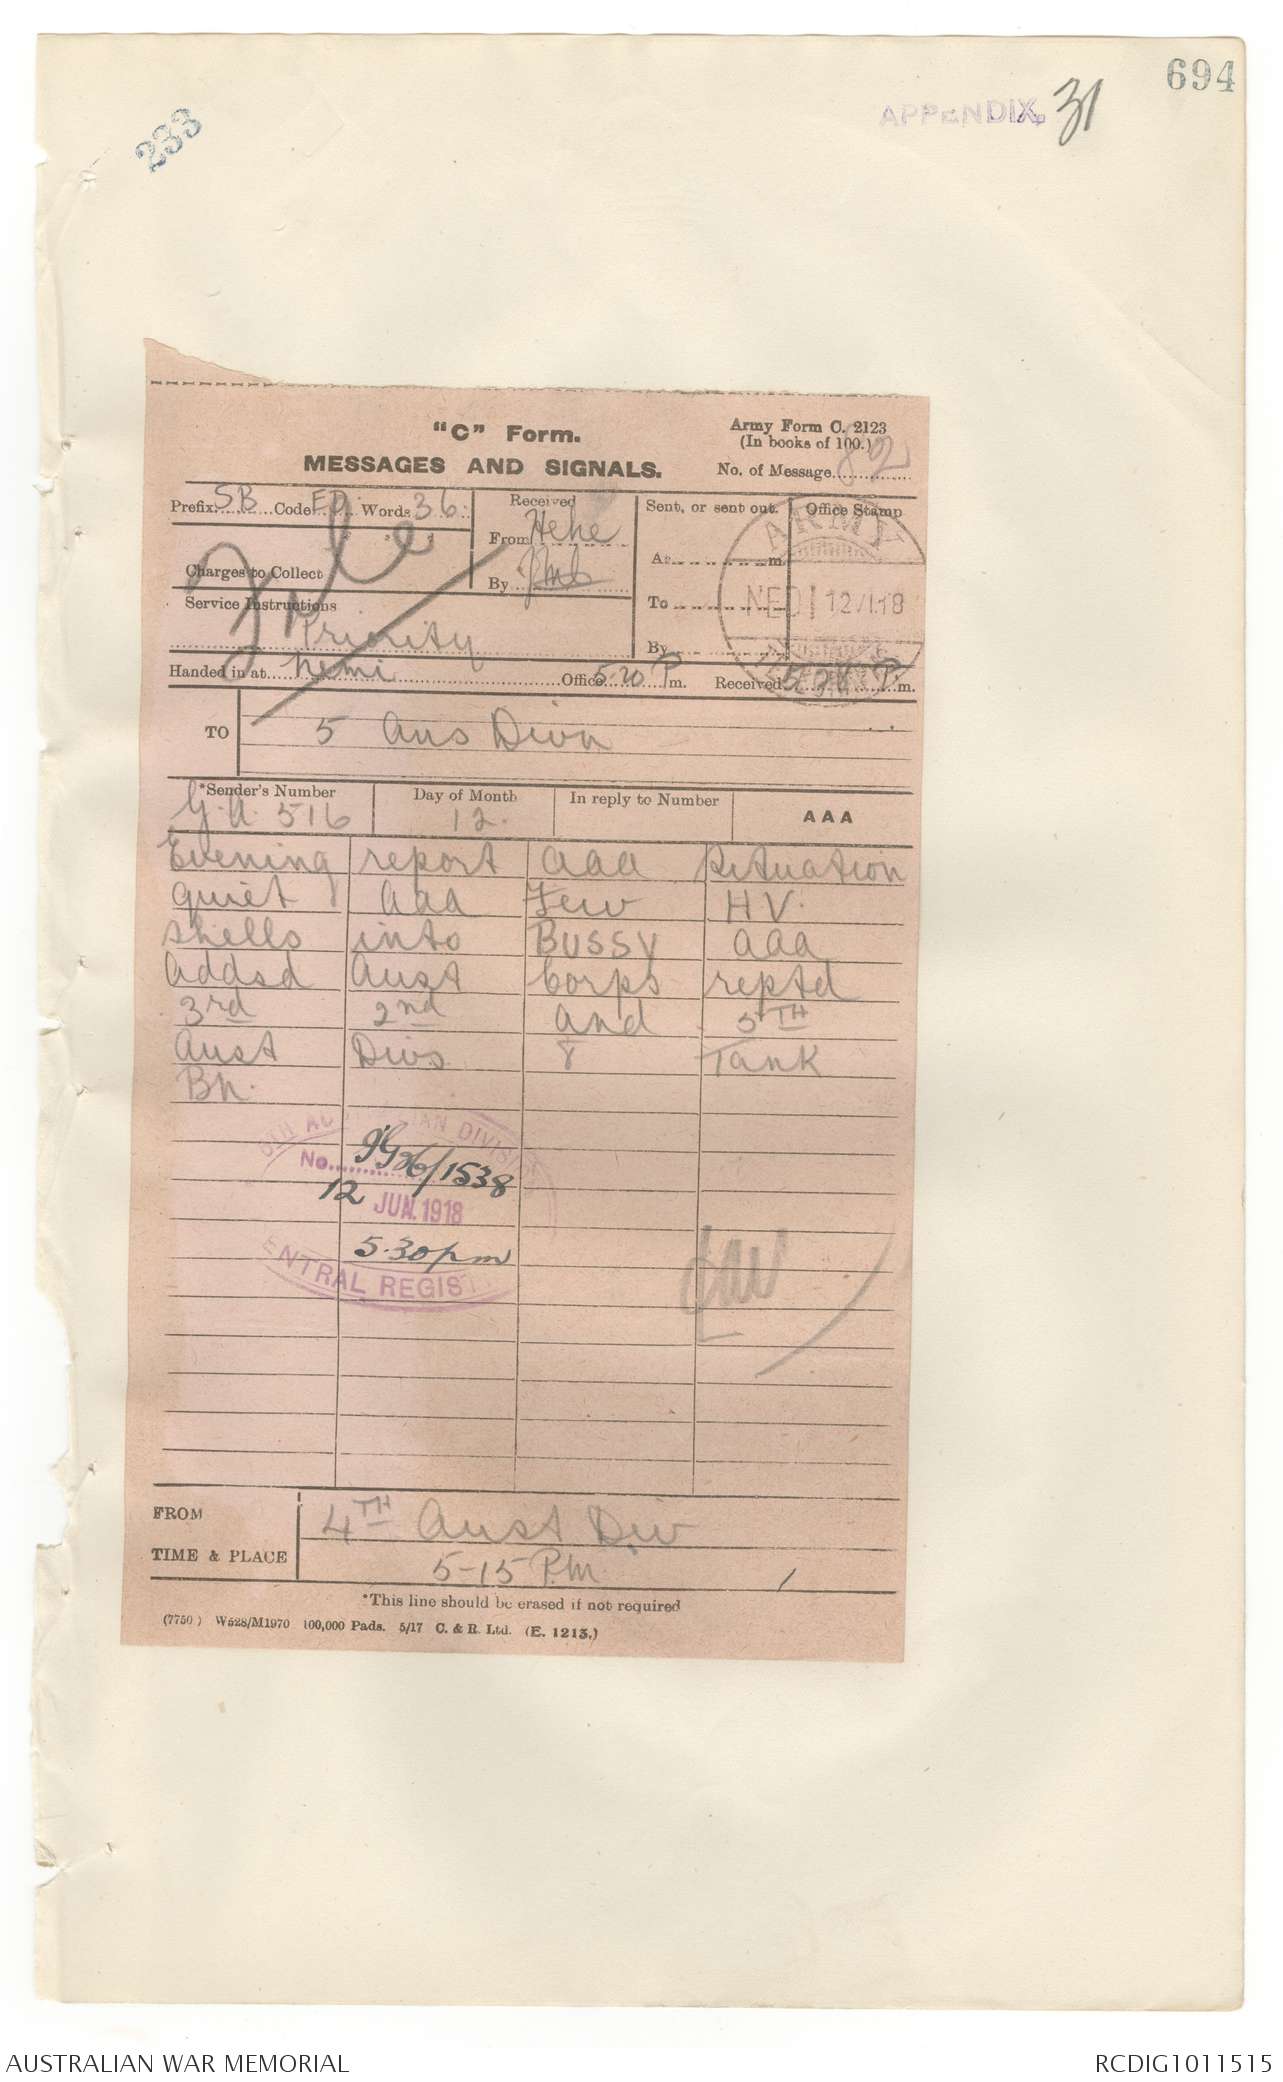 694
APPENDIX. 31
233
"C" Form.
MESSAGES AND SIGNALS.
Army Form C. 2123
(In books of 100.)
No. of Message 82
Prefix SB Code ED Words 36.
Received
From Hehe
By
Sent, or sent out.
At m
To
By
Office Stamp
ARMY
12 VI.18
Charges to Collect
File
Service Instructions
Priority
Handed in at hemi Office 5.20 P m. Received 5.28 P m.
TO 5 Aus Divn
*Sender's Number
G.A. 516
Day of Month
12.
In reply to Number
AAA
Evening report aaa Situation
quiet aaa Few HV.
shells into BUSSY aaa
addsd Aust Corps reptd
3rd 2nd and 5TH
Aust Divs 8 Tank
Bn.
DIVISION
No. G36/1538
12 JUN. 1918
5.30pm
ENTRAL REGIST
FROM 4TH Aust Div
TIME & PLACE 5-15 P.M.
*This line should be erased if not required
(7750) W528/M1970 100,000 Pads. 5/17 C. & R. Ltd. (E. 1213.)
AUSTRALIAN WAR MEMORIAL
RCDIG1011515